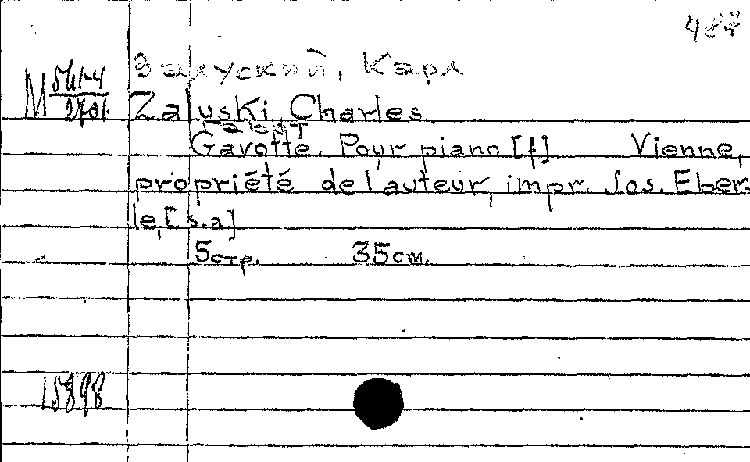 Залуский, Карл
M
Zaluski, Charles
Gavotte. Pour piano [f] Vienne,
propriété de l'auteur, impr. Jos. Eber-
le, [s.a]
5 стр. 35 см.
15898